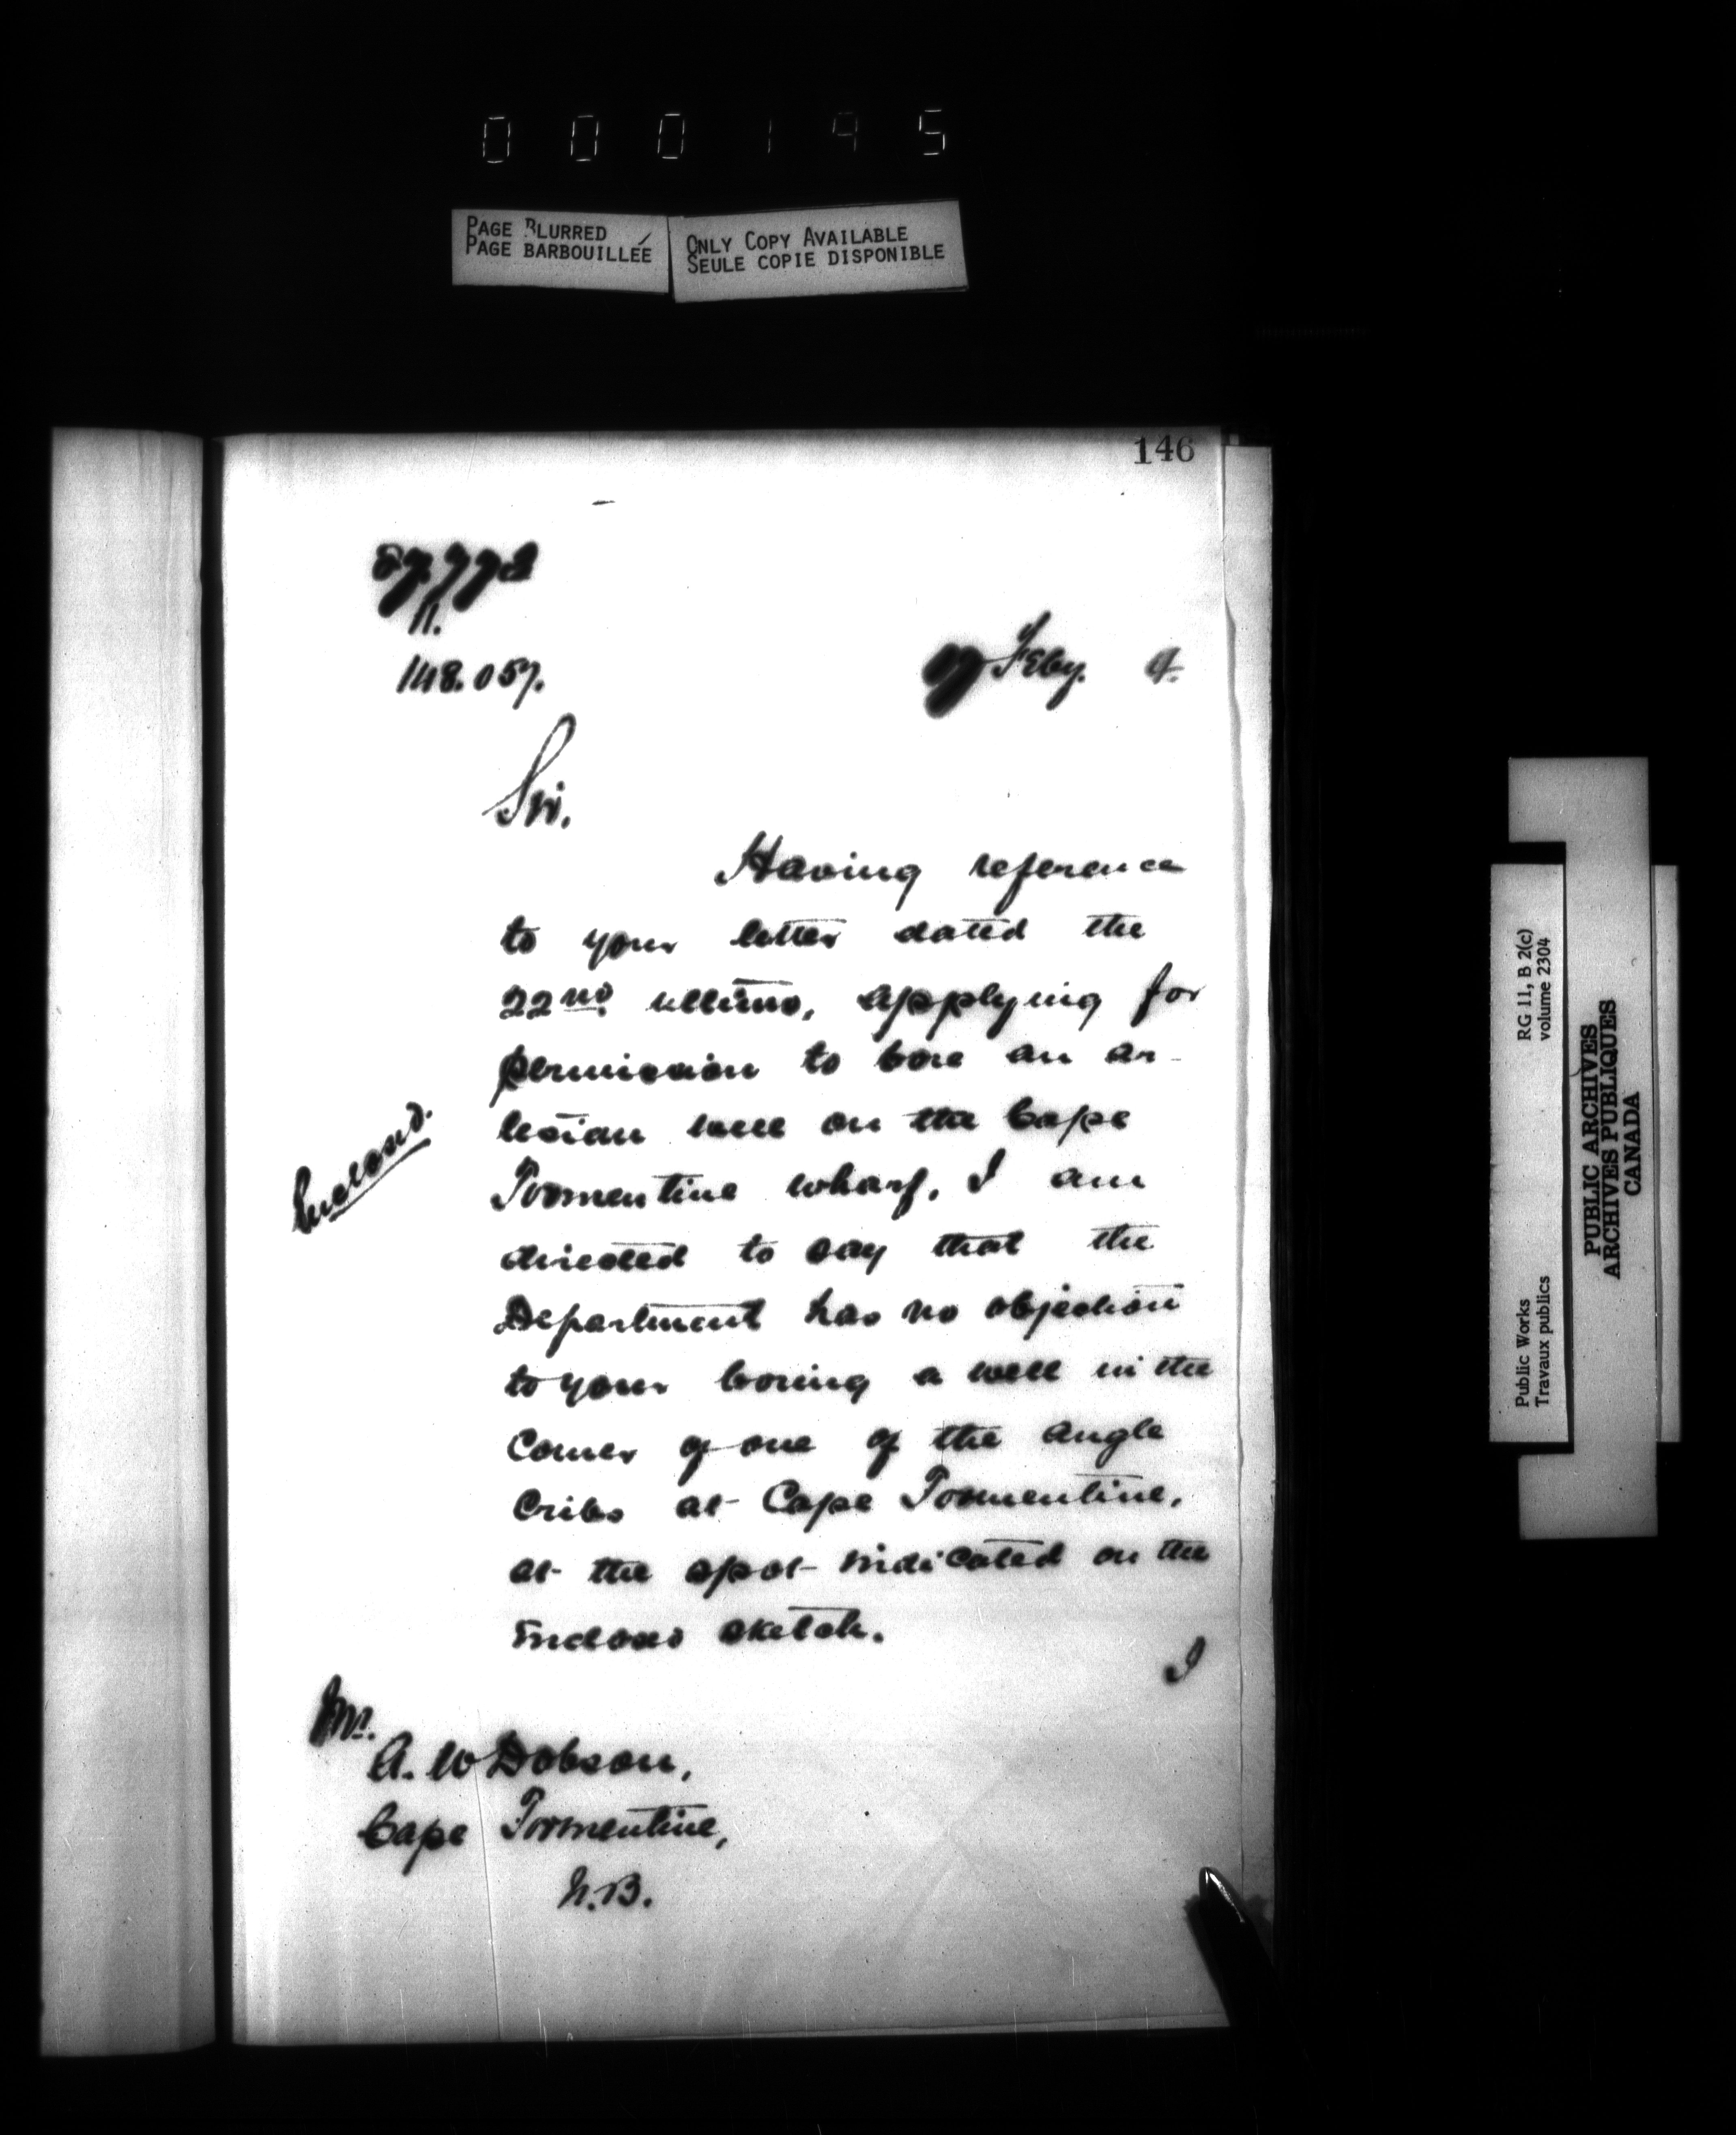 000195
PAGE BLURRED
PAGE BARBOUILLÉE
ONLY COPY AVAILABLE
SEULE COPIE DISPONIBLE
146
148.057.
Feby.
Sir.
Having reference
to your letter dated the
22nd. ultimo, applying for
permission to bore an ar-
tesian well on the Cape
Tormentine wharf, I am
directed to say that the
Department has no objection
to your boring a well in the
corner of one of the angle
cribs at Cape Tormentine,
at the spot indicated on the
inclosed sketch.
I
Inclosed.
Mr.
A. W Dobson,
Cape Tormentine,
N.B.
RG 11, B 2(c)
volume 2304
Public Works
Travaux publics
PUBLIC ARCHIVES
ARCHIVES PUBLIQUES
CANADA